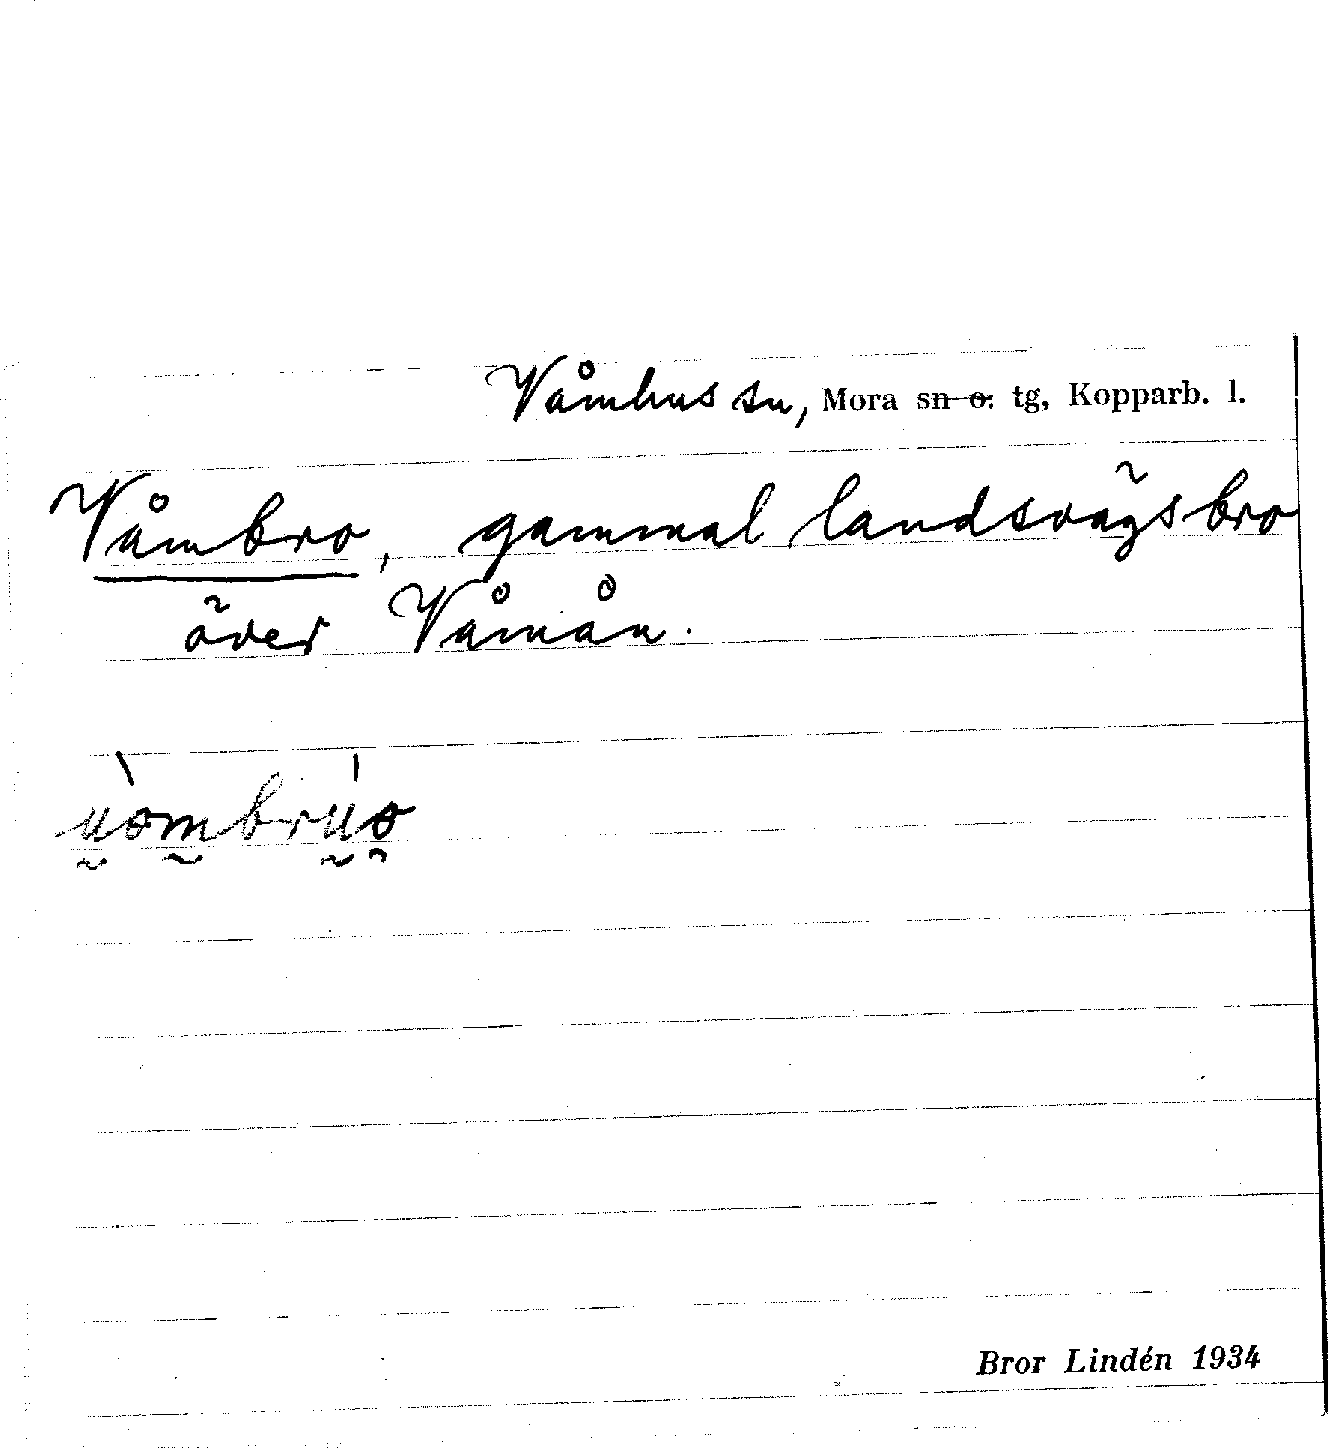 Våmhus sn, Mora ~~sn o.~~ tg, Kopparb. l.
Våmbro, gammal landsvägsbro
över Våmån.
Bror Lindén 1934